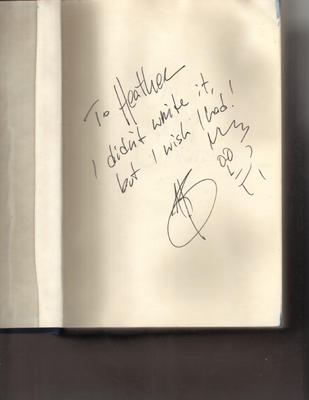 To Heather
I didn't write it,
but I wish I had!